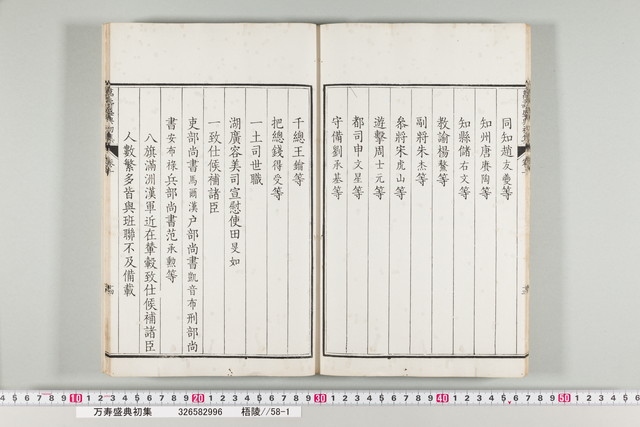 同知趙友夔等
知州唐賡陶等
知縣儲右文等
教諭楊鰲等
副將朱杰等
叅將宋虎山等
遊擊周士元等
都司申文星等
守備劉承基等
千總王綸等
把總錢得受等
一土司世職
湖廣容美司宣慰使田旻如
一致仕候補諸臣
吏部尚書馬爾漢户部尚書凱音布刑部尚
書安布祿兵部尚書范承勲等
八旗滿洲漢軍近在輦轂致仕候補諸臣
人數繁多皆與班聯不及備載
10 20 30 40 50
万寿盛典初集 326582996 梧陵//58-1